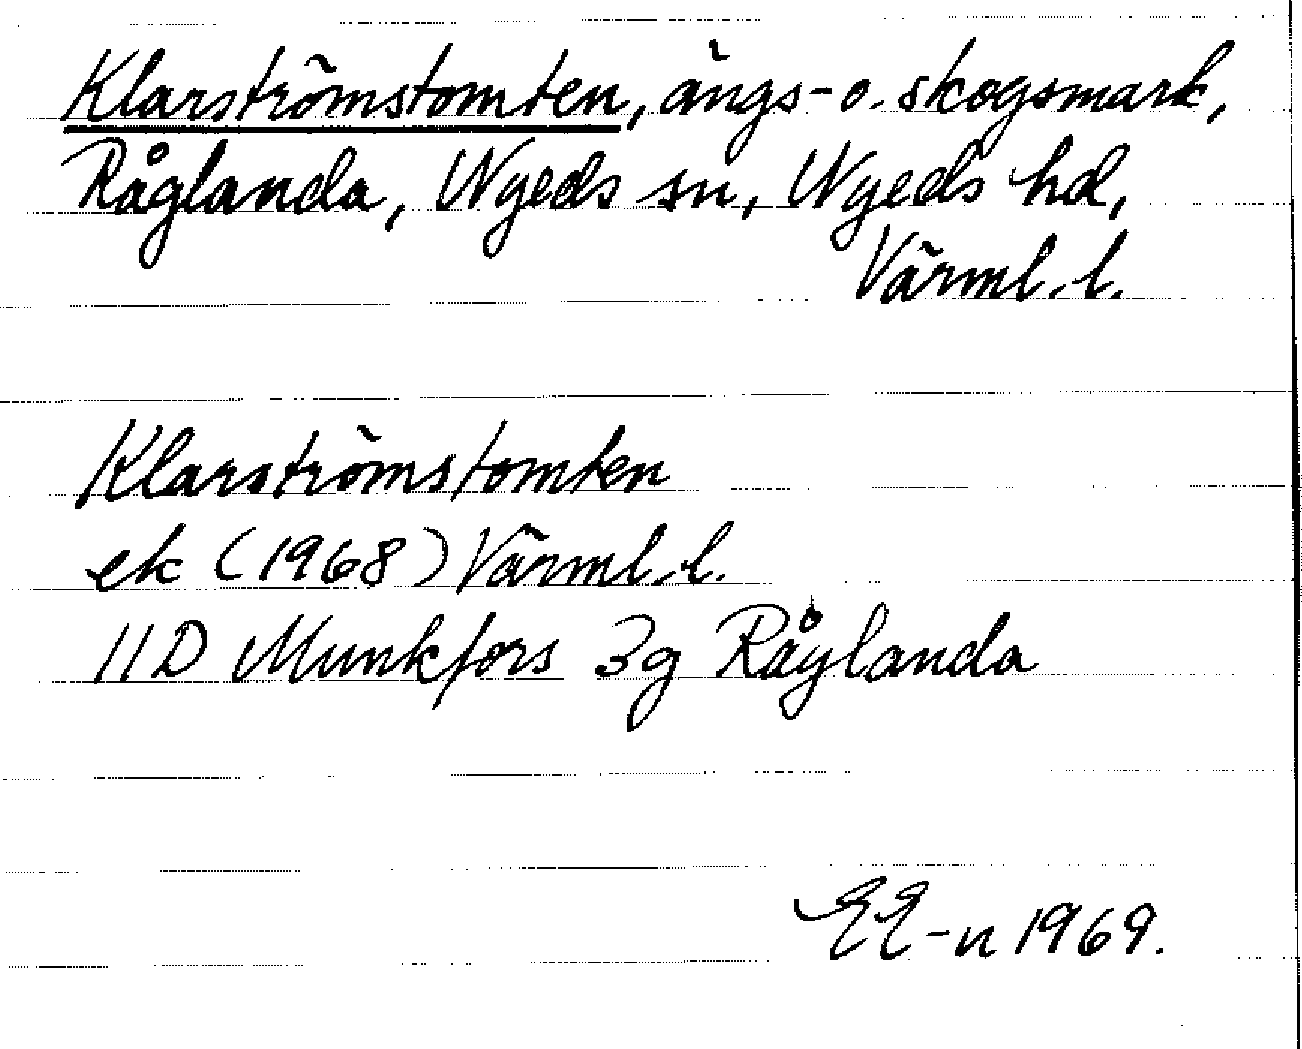 Klarströmstomten, ängs- o. skogsmark,
Råglanda, Nyeds sn, Nyeds hd,
Värml. l.
Klarströmstomten
ek (1968) Värml. l.
11D Munkfors 3g Råglanda
EE-n 1969.